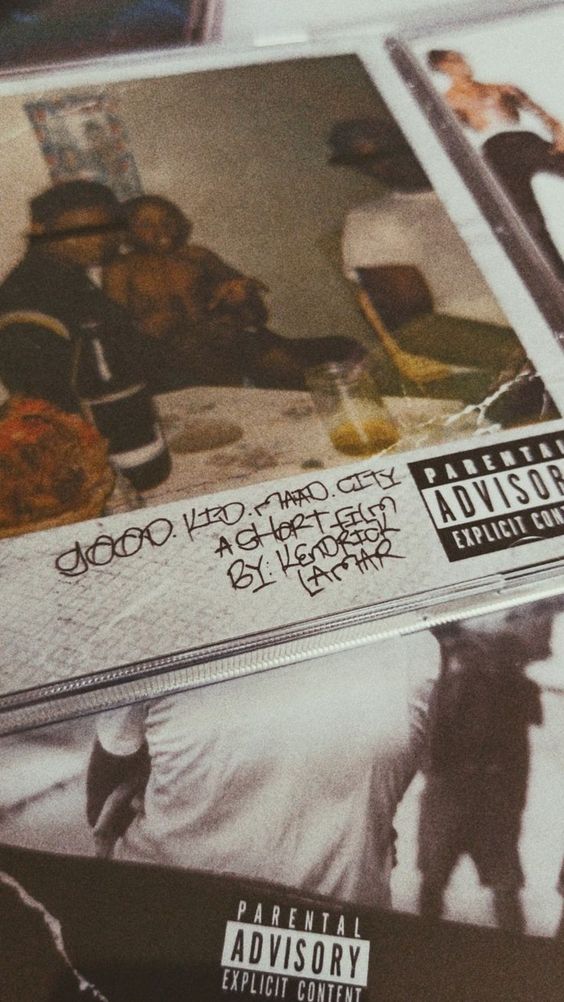 GOOD. KID. MAAD. CITY
A SHORT FILM
BY: KENDRICK
LAMAR
PARENTAL
ADVISORY
EXPLICIT
PARENTAL
ADVISORY
EXPLICIT CONTENT